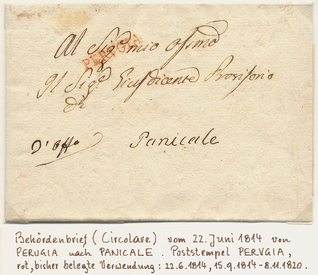 Al Sig.e mio Ossmo
PERUGIA
Il Sig.e Giusdicente Provisorio
di
D'Offo Panicale
Behördenbrief (Circolare) vom 22. Juni 1814 von
PERUGIA nach PANICALE. Poststempel PERVGIA,
rot, bisher belegte Verwendung: 22.6.1814, 15.9.1814-8.11.1820.